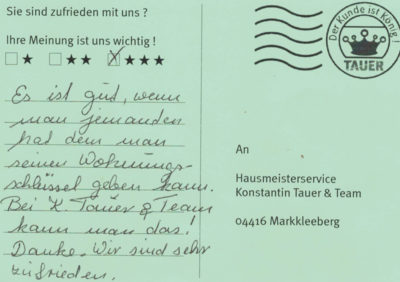 Sie sind zufrieden mit uns ?
Ihre Meinung ist uns wichtig !
Es ist gut, wenn
man jemanden
hat dem man
seinen Wohnungs-
schlüssel geben kann.
Bei K. Tauer & Team
kann man das!
Danke. Wir sind sehr
zufrieden.
Der Kunde ist König !
TAUER
An
Hausmeisterservice
Konstantin Tauer & Team
04416 Markkleeberg